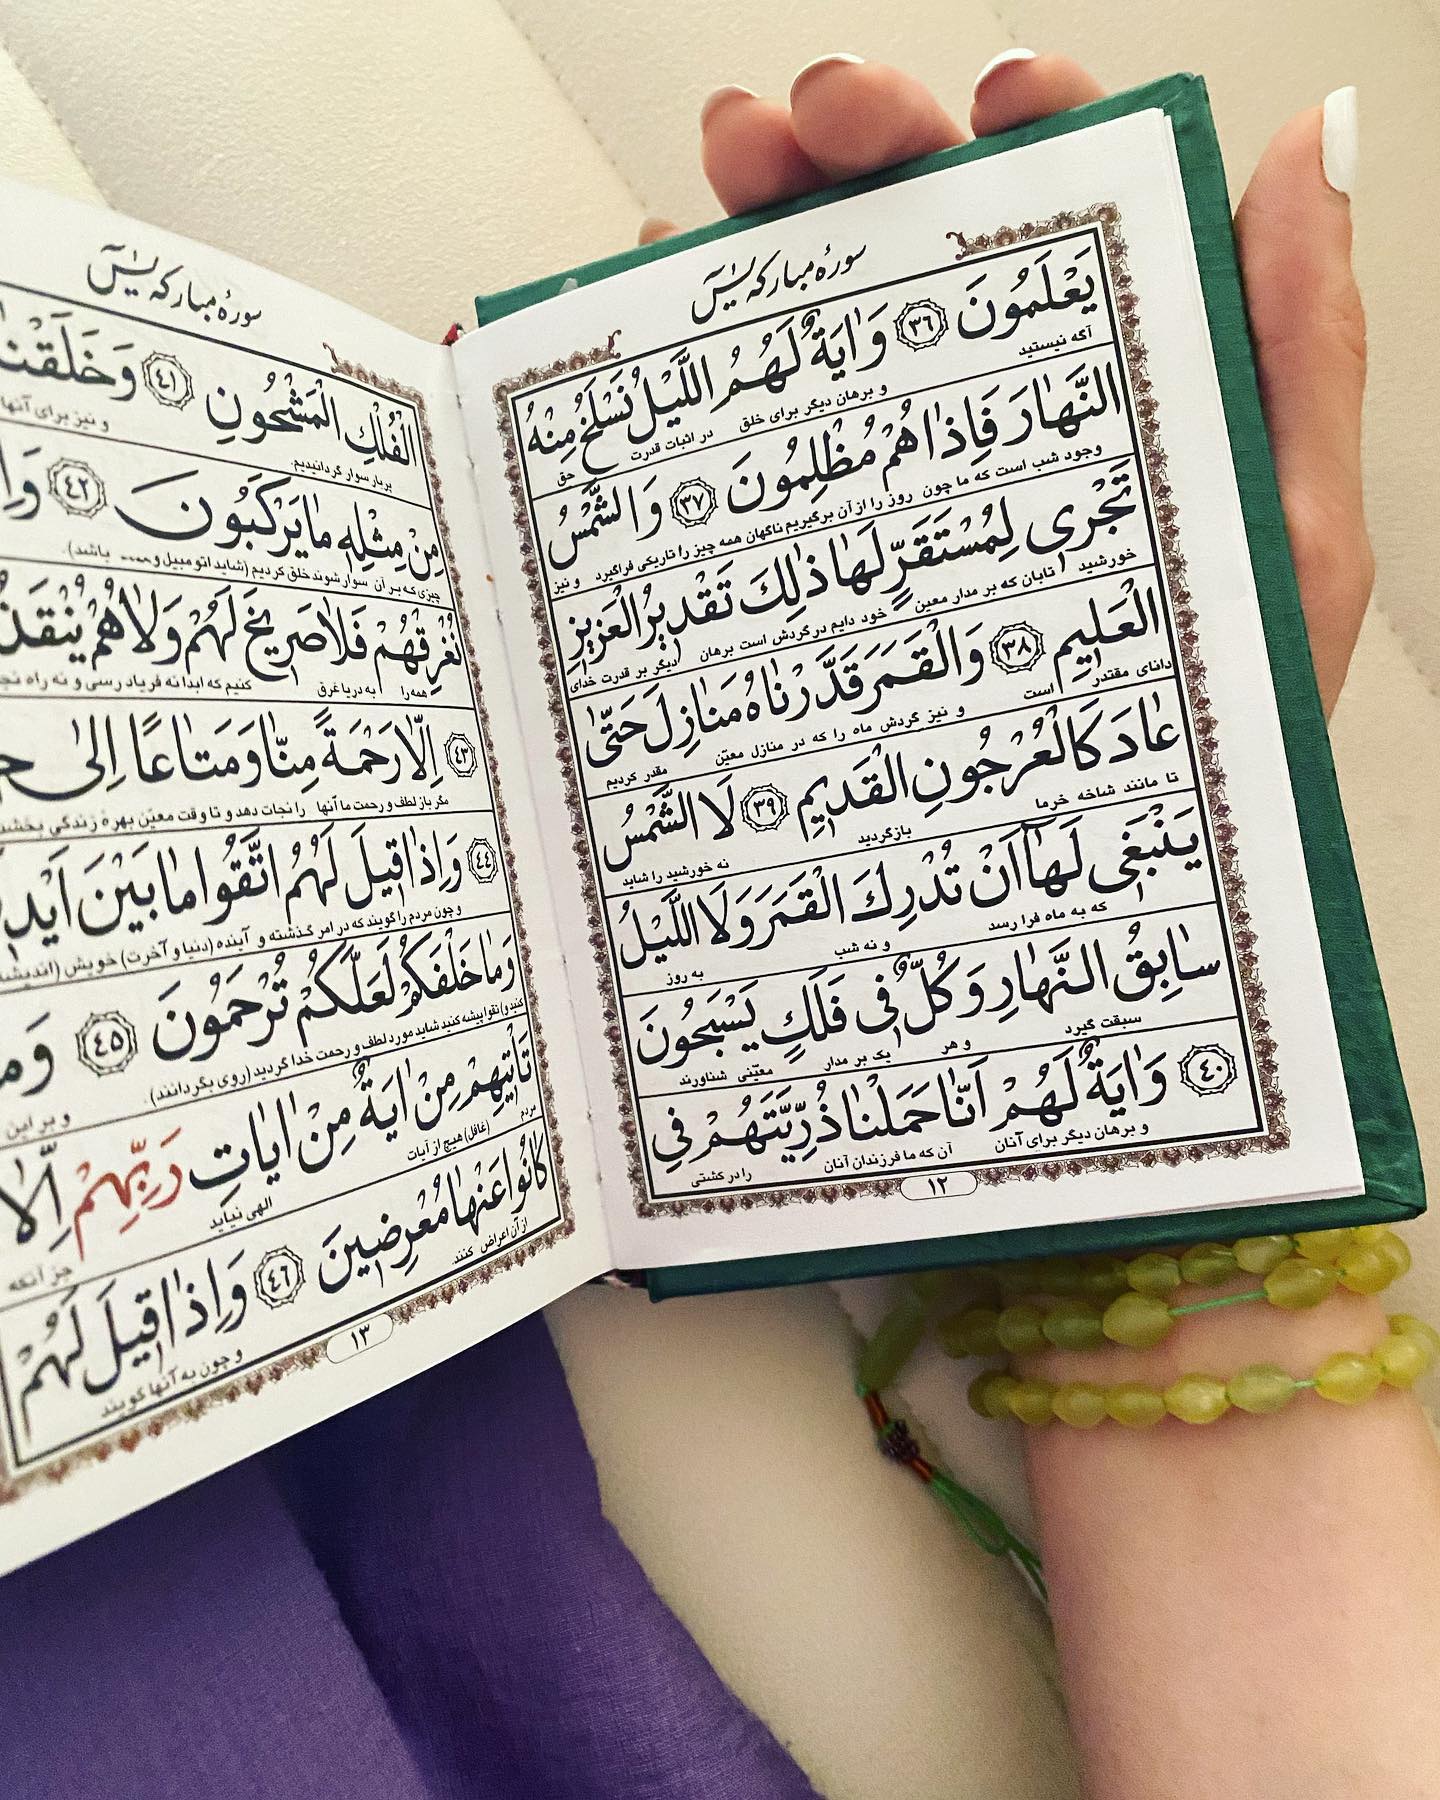 سورهٔ مبارکه یس
یَعْلَمُونَ ﴿۳۶﴾ وَاٰیَةٌ لَهُمُ اللَّیْلُ نَسْلَخُ مِنْهُ
آگه نیستید و برهان دیگر برای خلق در اثبات قدرت حق
النَّهٰارَ فَاِذٰا هُمْ مُظْلِمُونَ ﴿۳۷﴾ وَالشَّمْسُ
وجود شب است که ما چون روز را از آن برگیریم ناگهان همه چیز را تاریکی فراگیرد و نیز
تَجْرى لِمُسْتَقَرٍّ لَهٰا ذٰلِكَ تَقْدیرُ الْعَزیزِ
خورشید تابان که بر مدار معین خود دایم در گردش است برهان دیگر بر قدرت خدای
الْعَلیمِ ﴿۳۸﴾ وَالْقَمَرَ قَدَّرْنٰاهُ مَنٰازِلَ حَتّٰى
دانای مقتدر است و نیز گردش ماه را که در منازل معیّن مقدر کردیم
عٰادَ كَالْعُرْجُونِ الْقَدیمِ ﴿۳۹﴾ لَا الشَّمْسُ
تا مانند شاخه خرما بازگردید نه خورشید را شاید
یَنْبَغى لَهٰا اَنْ تُدْرِكَ الْقَمَرَ وَلَا اللَّیْلُ
که به ماه فرا رسد و نه شب به روز
سٰابِقُ النَّهٰارِ وَكُلٌّ فى فَلَكٍ یَسْبَحُونَ
سبقت گیرد و هر یک بر مدار معیّنی شناورند
﴿۴۰﴾ وَاٰیَةٌ لَهُمْ اَنّٰا حَمَلْنٰا ذُرِّیَّتَهُمْ فِى
و برهان دیگر برای آنان آن که ما فرزندان آنان را در کشتی
۱۲
سورهٔ مبارکه یس
الْفُلْكِ الْمَشْحُونِ ﴿۴۱﴾ وَخَلَقْنٰا
بربار سوار گردانیدیم. و نیز برای آنها
مِنْ مِثْلِهِ مٰا یَرْكَبُونَ ﴿۴۲﴾
چیزی که بر آن سوار شوند خلق کردیم (شاید اتومبیل و .... باشد).
نُغْرِقْهُمْ فَلٰا صَریخَ لَهُمْ وَلٰا هُمْ
همه را به دریا غرق کنیم که ابدا نه فریاد رسی و نه راه
﴿۴۳﴾ اِلّٰا رَحْمَةً مِنّٰا وَمَتٰاعًا اِلٰى
مگر باز لطف و رحمت ما آنها را نجات دهد و تا وقت معیّن بهرهٔ زندگی
﴿۴۴﴾ وَاِذٰا قیلَ لَهُمُ اتَّقُوا مٰا بَیْنَ
و چون مردم را گویند که در امر گذشته و آینده (دنیا و آخرت) خویش
وَمٰا خَلْفَكُمْ لَعَلَّكُمْ تُرْحَمُونَ ﴿۴۵﴾
کنید و) تقوا پیشه کنید شاید مورد لطف و رحمت خدا گردید (روی بگردانند). و بر این
تَأْتیهِمْ مِنْ اٰیَةٍ مِنْ اٰیٰاتِ رَبِّهِمْ اِلّٰا
مردم (غافل) هیچ از آیات الهی نیاید جز آنکه
كٰانُوا عَنْهٰا مُعْرِضینَ ﴿۴۶﴾ وَاِذٰا قیلَ لَهُمْ
از آن اعراض کنند و چون به آنها گویند
۱۳